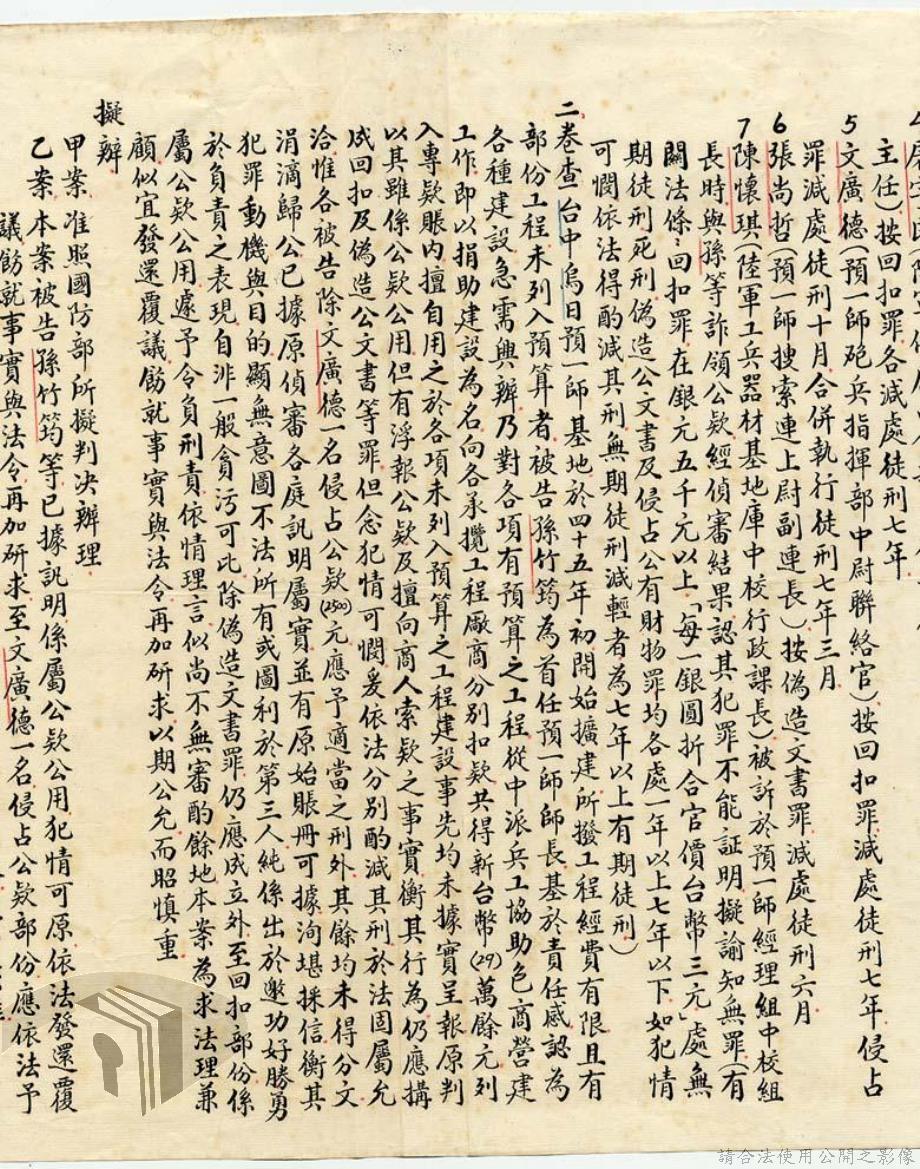 主任)按回扣罪各減處徒刑七年
5 文廣德(預一師砲兵指揮部中尉聯絡官)按回扣罪減處徒刑七年侵占
罪減處徒刑十月合併執行徒刑七年三月
6 張尚哲(預一師搜索連上尉副連長)按偽造文書罪減處徒刑六月
7 陳懷琪(陸軍工兵器材基地庫中校行政課長)被訴於預一師經理組中校組
長時與孫等詐領公款經偵審結果認其犯罪不能証明擬諭知無罪(有
關法條:回扣罪在銀元五千元以上「每一銀圓折合官價台幣三元」處無
期徒刑死刑偽造公文書及侵占公有財物罪均各處一年以上七年以下如犯情
可憫依法得酌減其刑無期徒刑減輕者為七年以上有期徒刑)
二卷查台中烏日預一師基地於四十五年初開始擴建所撥工程經費有限且有
部份工程未列入預算者被告孫竹筠為首任預一師師長基於責任感認為
各種建設急需興辦乃對各項有預算之工程從中派兵工協助包商營建
工作即以捐助建設為名向各承攬工程廠商分別扣款共得新台幣(29)萬餘元列
入專款賬內擅自用之於各項未列入預算之工程建設事先均未據實呈報原判
以其雖係公款公用但有浮報公款及擅向商人索款之事實衡其行為仍應構
成回扣及偽造公文書等罪但念犯情可憫爰依法分別酌減其刑於法固屬允
洽惟各被告除文廣德一名侵占公款(2500)元應予適當之刑外其餘均未得分文
涓滴歸公已據原偵審各庭訊明屬實並有原始賬冊可據洵堪採信衡其
犯罪動機與目的顯無意圖不法所有或圖利於第三人純係出於邀功好勝勇
於負責之表現自非一般貪污可比除偽造文書罪仍應成立外至回扣部份係
屬公款公用遽予令負刑責依情理言似尚不無審酌餘地本案為求法理兼
顧似宜發還覆議飭就事實與法令再加研求以期公允而昭慎重
擬辦
甲案准照國防部所擬判決辦理
乙案本案被告孫竹筠等已據訊明係屬公款公用犯情可原依法發還覆
議飭就事實與法令再加研求至文廣德一名侵占公款部份應依法予
請合法使用公開之影像